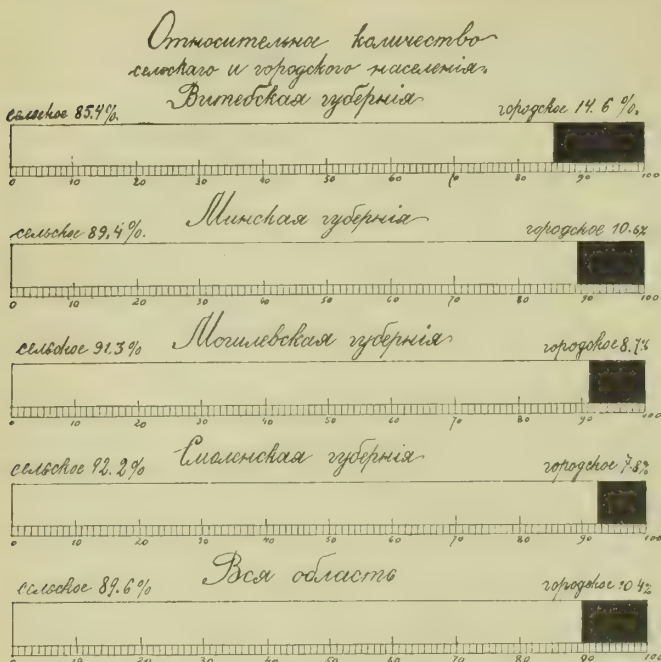 Относительное количество
сельскаго и городского населенія.
Витебская губернія
сельское 85.4%. городское 14.6 %.
0 10 20 30 40 50 60 70 80 90 100
Минская губернія
сельское 89,4%. городское 10.6%
0 10 20 30 40 50 60 70 80 90 100
Могилевская губернія
сельское 91.3% городское 8.7%
0 10 20 30 40 50 60 70 80 90 100
Смоленская губернія
сельское 92.2% городское 7.8%
0 10 20 30 40 50 60 70 80 90 100
Вся область
сельское 89.6% городское 10 4%
10 20 30 40 50 60 70 80 90 100